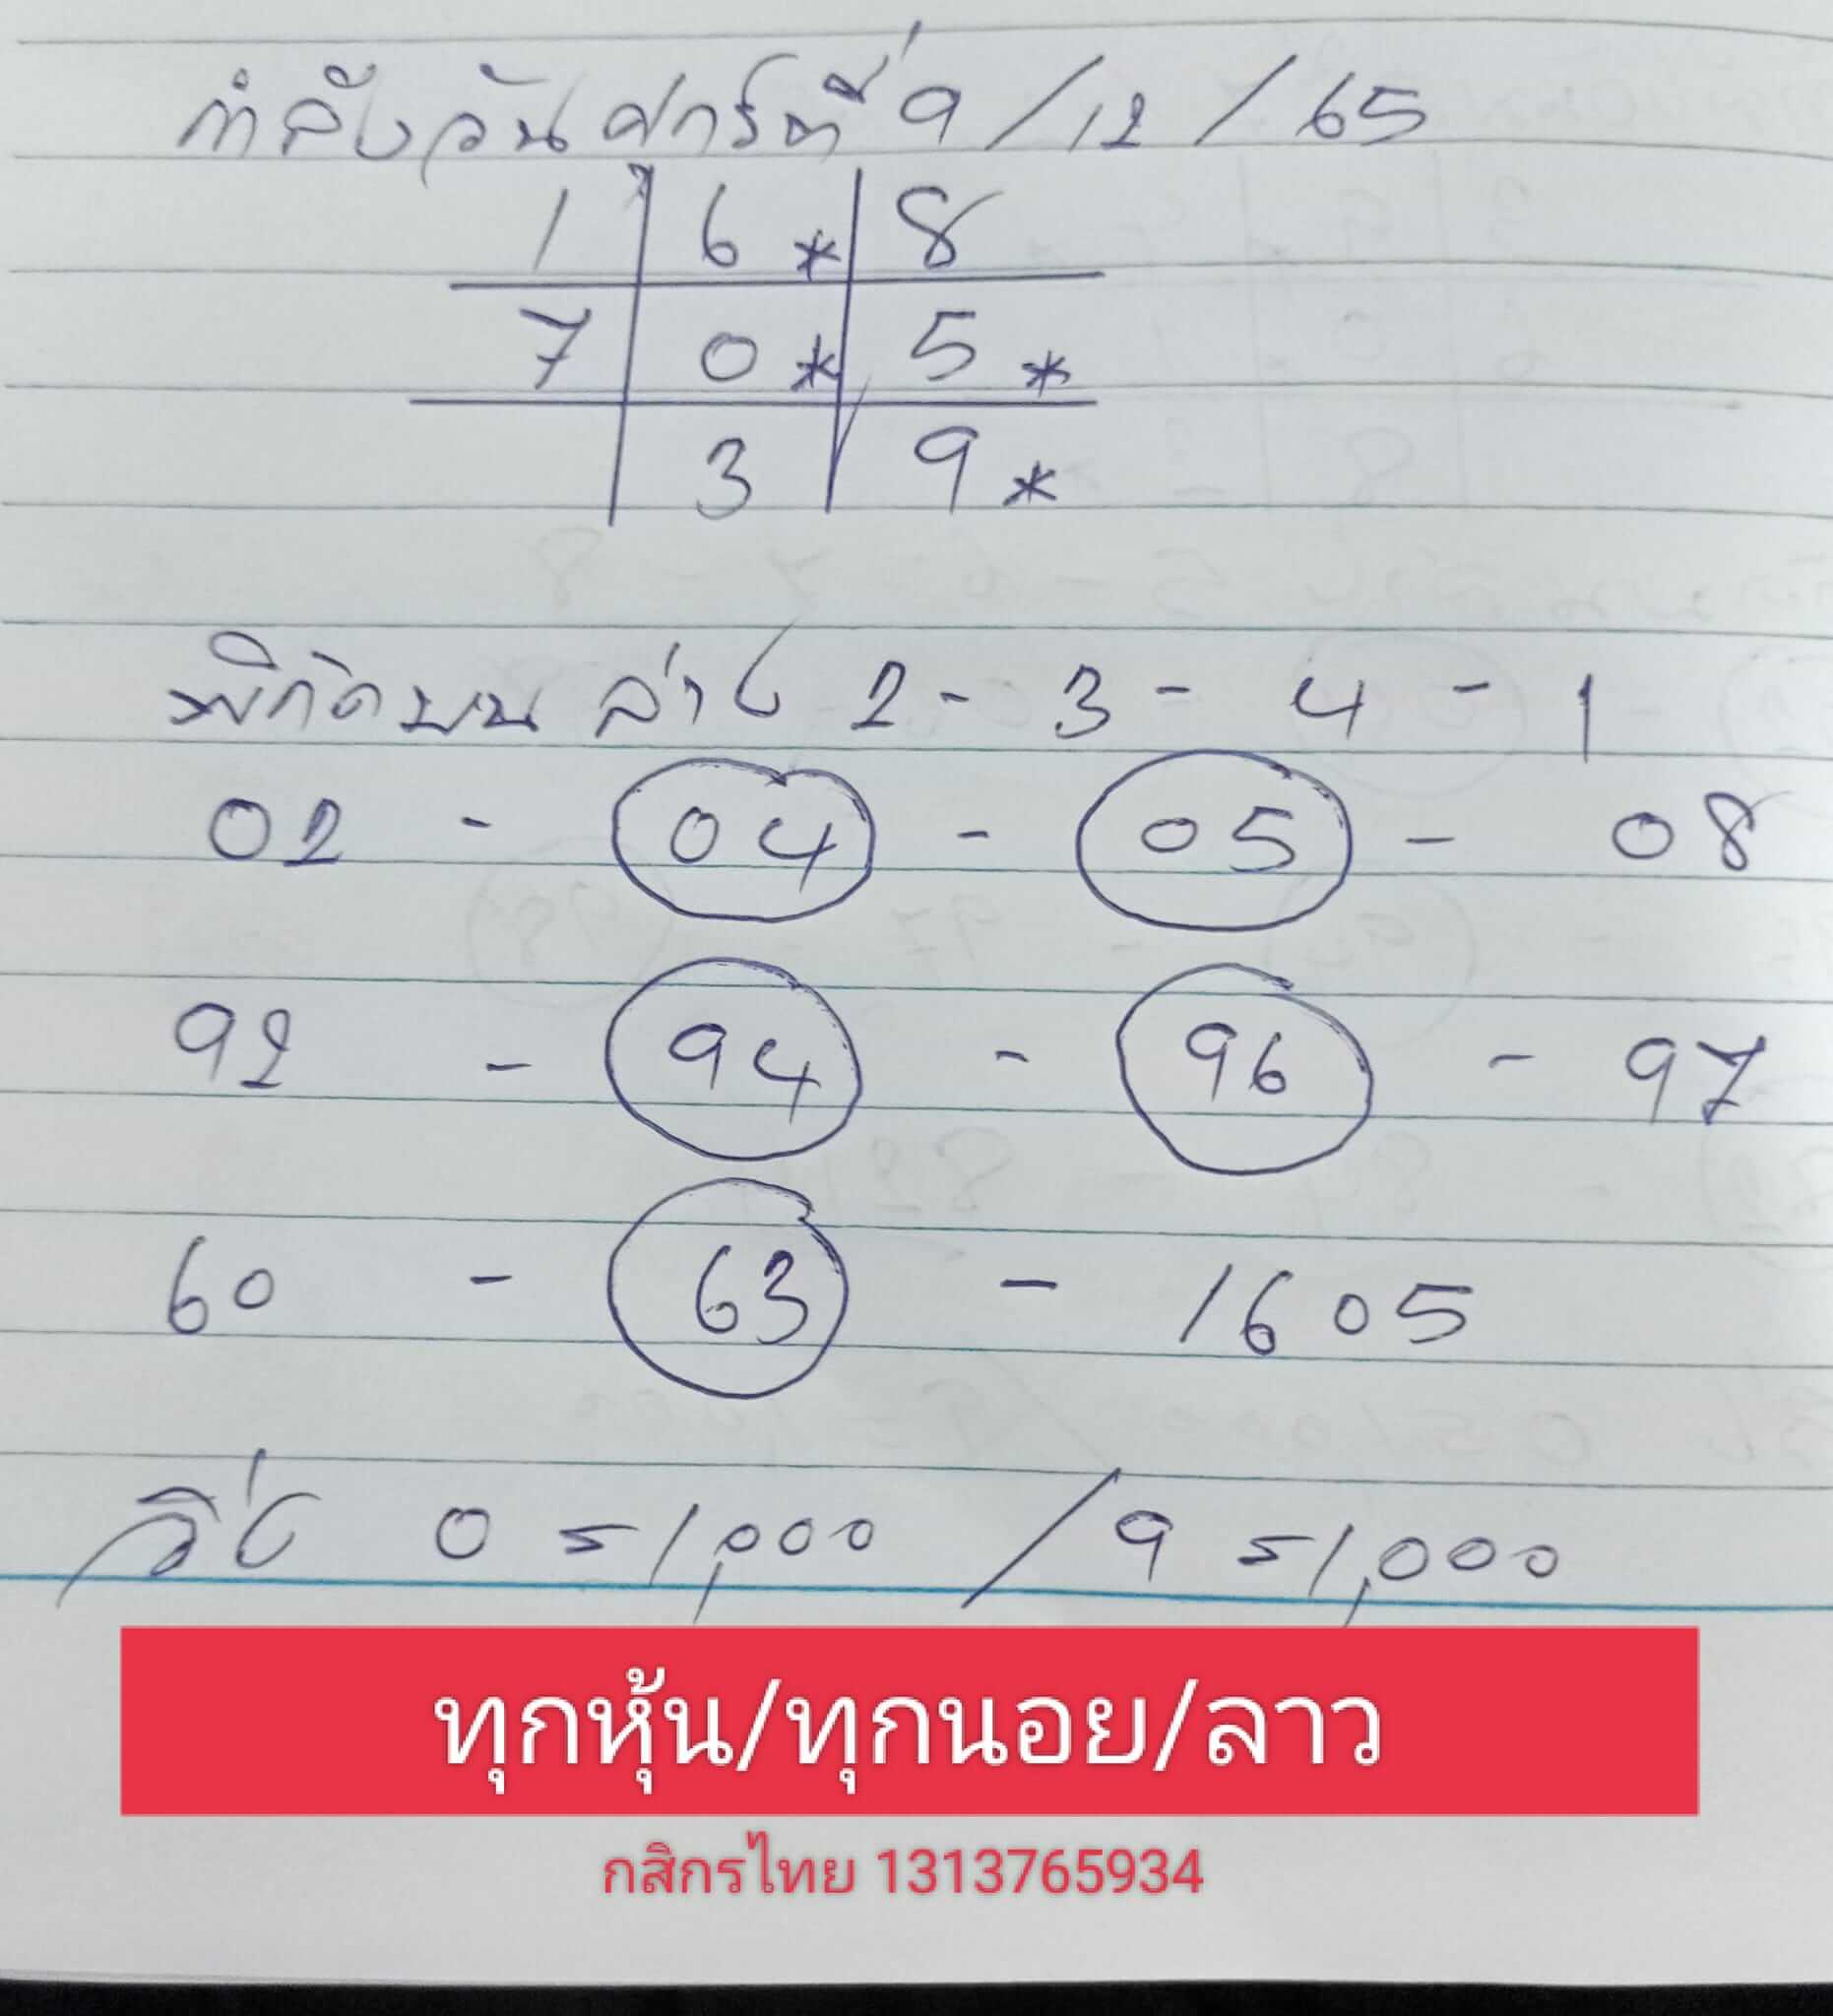 กำลังวันศุกร์ที่ 9/12/65
1 6* 8
7 0* 5*
3 9*
พิกัดบน ล่าง 2 - 3 - 4 - 1
02 - 04 - 05 - 08
92 - 94 - 96 - 97
60 - 63 - 1605
วิ่ง 0 = 1,000 / 9 = 1,000
ทุกหุ้น/ทุกนอย/ลาว
กสิกรไทย 1313765934